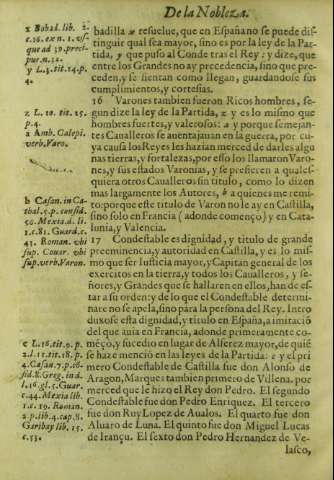 De la Nobleza.
x Bobad. lib. 2.
c.16. ex n. 1. vs-
que ad 30. preci-
pue n. 12.
y L.3. tit.14. p.
4.
badilla x resuelue, que en España no se puede dis-
tinguir qual sea mayor, sino es por la ley de la Par-
tida, y que puso al Conde tras el Rey: y dize, que
entre los Grandes no ay precedencia, sino que pre-
ceden, y se sientan como llegan, guardandose sus
cumplimientos, y cortesias.
z L. 10. tit. 25.
p.4.
a Amb. Calepi.
verb, Varo.
16 Varones tambien fueron Ricos hombres, se-
gun dize la ley de la Partida, z y es lo mismo que
hombres fuertes, y valerosos: a y porque semejan-
tes Caualleros se auentajauan en la guerra, por cu-
ya causa los Reyes les hazian merced de darles algu
nas tierras, y fortalezas, por esso los llamaron Varo-
nes, y sus estados Varonias, y se prefieren a quales-
quiera otros Caualleros sin titulo, como lo dizen
mas largamente los Autores, b a quienes me remi-
to: porque este titulo de Varon no le ay en Castilla,
sino solo en Francia (adonde començò) y en Cata-
lunia, y Valencia.
b Casan. in Ca-
thal. 5. p. consid.
50. Mexia. d. li.
1. c.81. Guard. c.
43. Roman. vbi
sup. Couar. vbi
sup. verb, Varon.
17 Condestable es dignidad, y titulo de grande
preeminencia, y autoridad en Castilla, y es lo mis-
mo que ser Iusticia mayor, y Capitan general de los
exercitos en la tierra, y todos los Caualleros, y se-
ñores, y Grandes que se hallaren en ellos, han de es-
tar a su orden: y de lo que el Condestable determi-
nare no se apela, sino para la persona del Rey. Intro
duxose esta dignidad, y titulo en España, a imitaciō
del que auia en Francia, adonde primeramente co-
mēçò, y sucedio en lugar de Alferez mayor, de quiē
se haze menciō en las leyes de la Partida: c y el pri
mero Condestable de Castilla fue don Alonso de
Aragon, Marques tambien primero de Villena. por
merced que le hizo el Rey don Pedro. El segundo
Condestable fue don Pedro Enriquez. El tercero
fue don Ruy Lopez de Aualos. El quarto fue don
Aluaro de Luna. El quinto fue don Miguel Lucas
de Irançu. El sexto don Pedro Hernandez de Ve-
lasco,
c L.16. tit. 9. p.
2. l. 11. tit.18. p.
4. Casan. 7. p. cō
sid. 8. Greg. in d.
l. 16. gl. 1. Guar.
c.44. Mexia lib.
1. c. 19. Roman.
2. p. lib. 4. cap. 8.
Garibay lib. 15.
c.53.